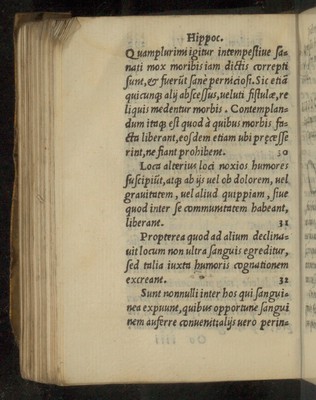 Hippoc.
Quamplurimi igitur intempestiue sa-
nati mox moribis iam dictis correpti
sunt, & fuerũt sanè perniciosi. Sic etiã
quicunq; alij abscessus, ueluti fistulæ, re
liquis medentur morbis. Contemplan-
dum itaq; est quod à quibus morbis fa-
cta liberant, eosdem etiam ubi præcesse
rint, ne fiant prohibent. 30
Loca alterius loci noxios humores
suscipiũt, atq; ab ijs uel ob dolorem, uel
grauitatem, uel aliud quippiam, siue
quod inter se communitatem habeant,
liberant. 31
Propterea quod ad alium declina-
uit locum non ultra sanguis egreditur,
sed talia iuxta humoris cognationem
excreant. 32
Sunt nonnulli inter hos qui sangui-
nea expuunt, quibus opportune sangui
nem auferre conuenit: alijs uero perin-